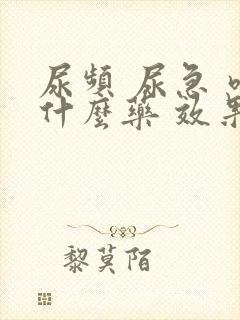 尿頻 尿急
什麼藥 效果
黎莫陌